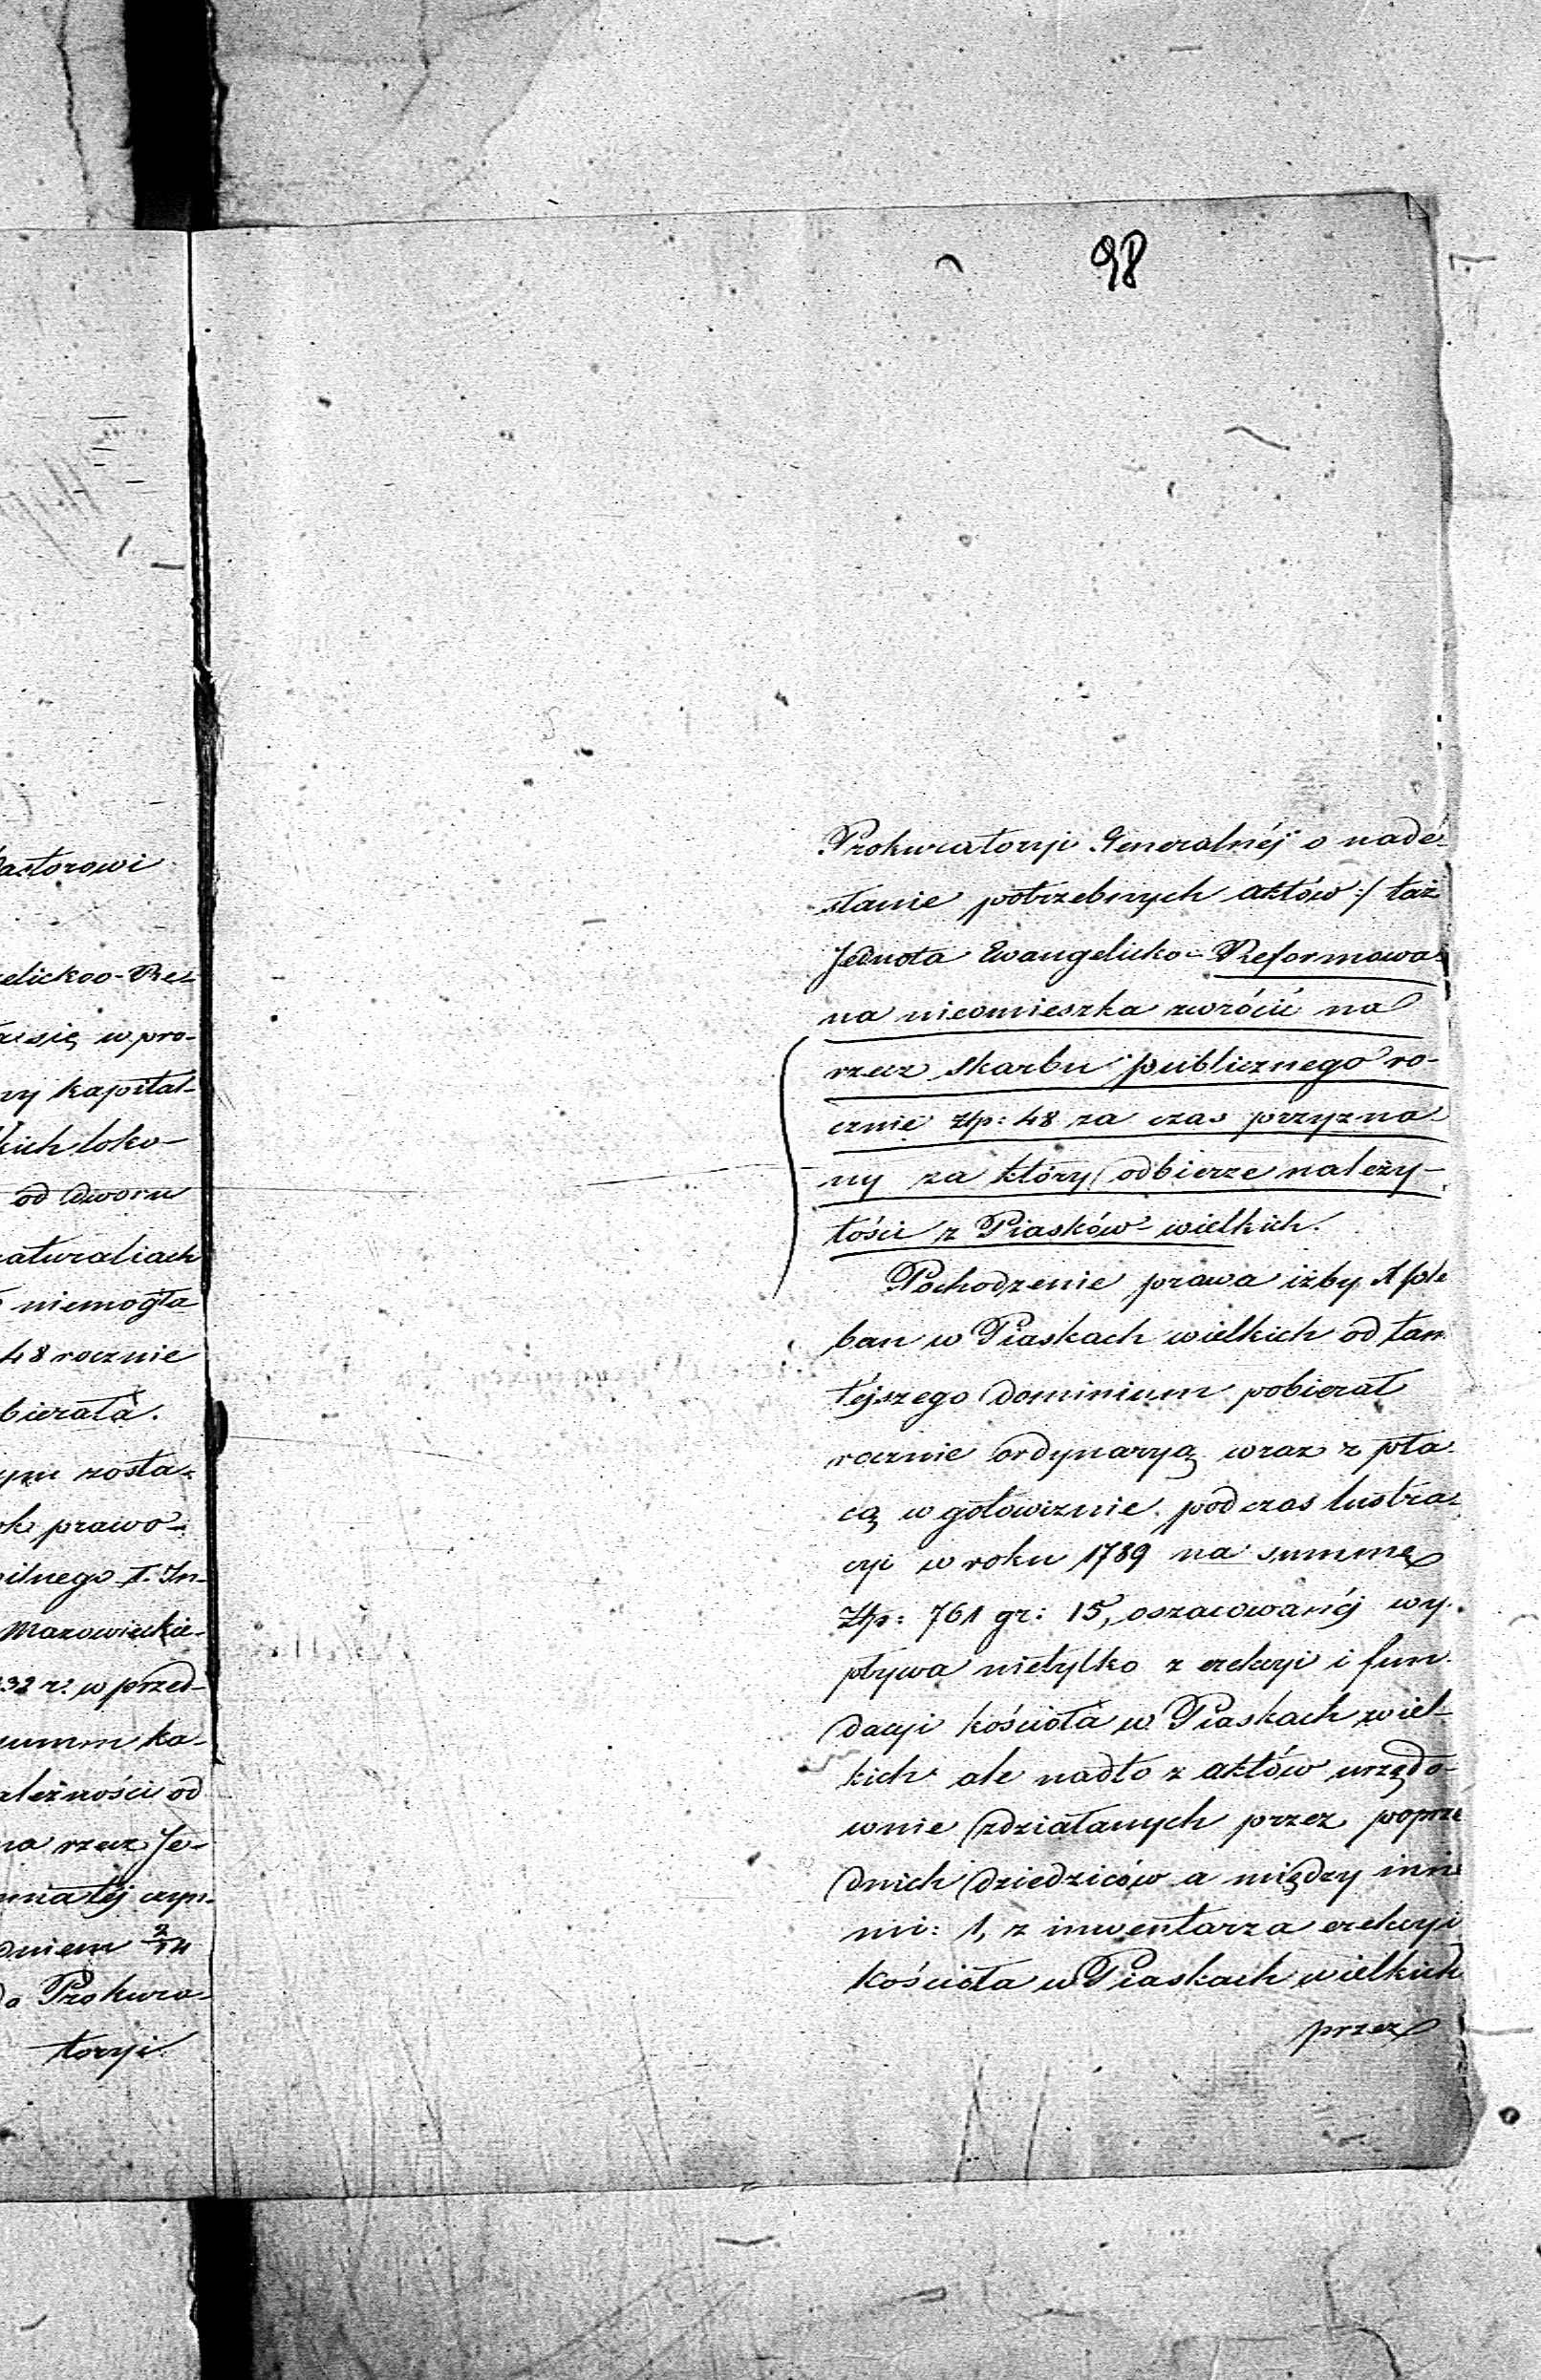 astorowi
elickoo-Re-
a się w pro-
ny kapital-
kich loko-
od dworu
naturaliach
niemogła
48 rocznie
bierała.
ym zosta-
ok prawo-
ilnego I. In-
Mazowieckie-
32 r. w przed-
summ ka-
ależności od
na rzecz Je-
mniałéj czyn-
dniem 2/14
do Prokura-
toryi
98
Prokuratoryi Generalnéj o nade-
słanie potrzebnych aktów:/ taż
Jednota Ewangelicko-Reformowa-
na nieomieszka zwrócić na
rzecz skarbu publicznego ro-
cznie Złp: 48 za czas przyzna-
ny za który odbierze należy-
tości z Piasków wielkich.
Pochodzenie prawa iżby X ple
ban w Piaskach wielkich od tam
téjszego dominium pobierał
rocznie ordynaryą wraz z pła-
cą w gotowiznie podczas lustra-
cyi w roku 1789 na summę
Złp: 761 gr: 15, oszacowanéj wy-
pływa nietylko z erekcyi i fun-
dacyi kościoła w Piaskach wiel-
kich ale nadto z aktów urzędo-
wnie zdziałanych przez poprze
dnich dziedziców a między inne
mi: 1, z inwentarza erekcyi
Kościoła w Piaskach wielkich
przez